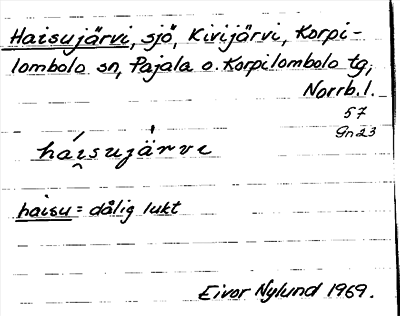 Haisujärvi, sjö, Kivijärvi, Korpi-
lombolo sn, Pajala o. Korpilombolo tg,
Norrb. l.
57
Gn 23
hái̯sujä̀rvi
haisu = dålig lukt
Eivor Nylund 1969.